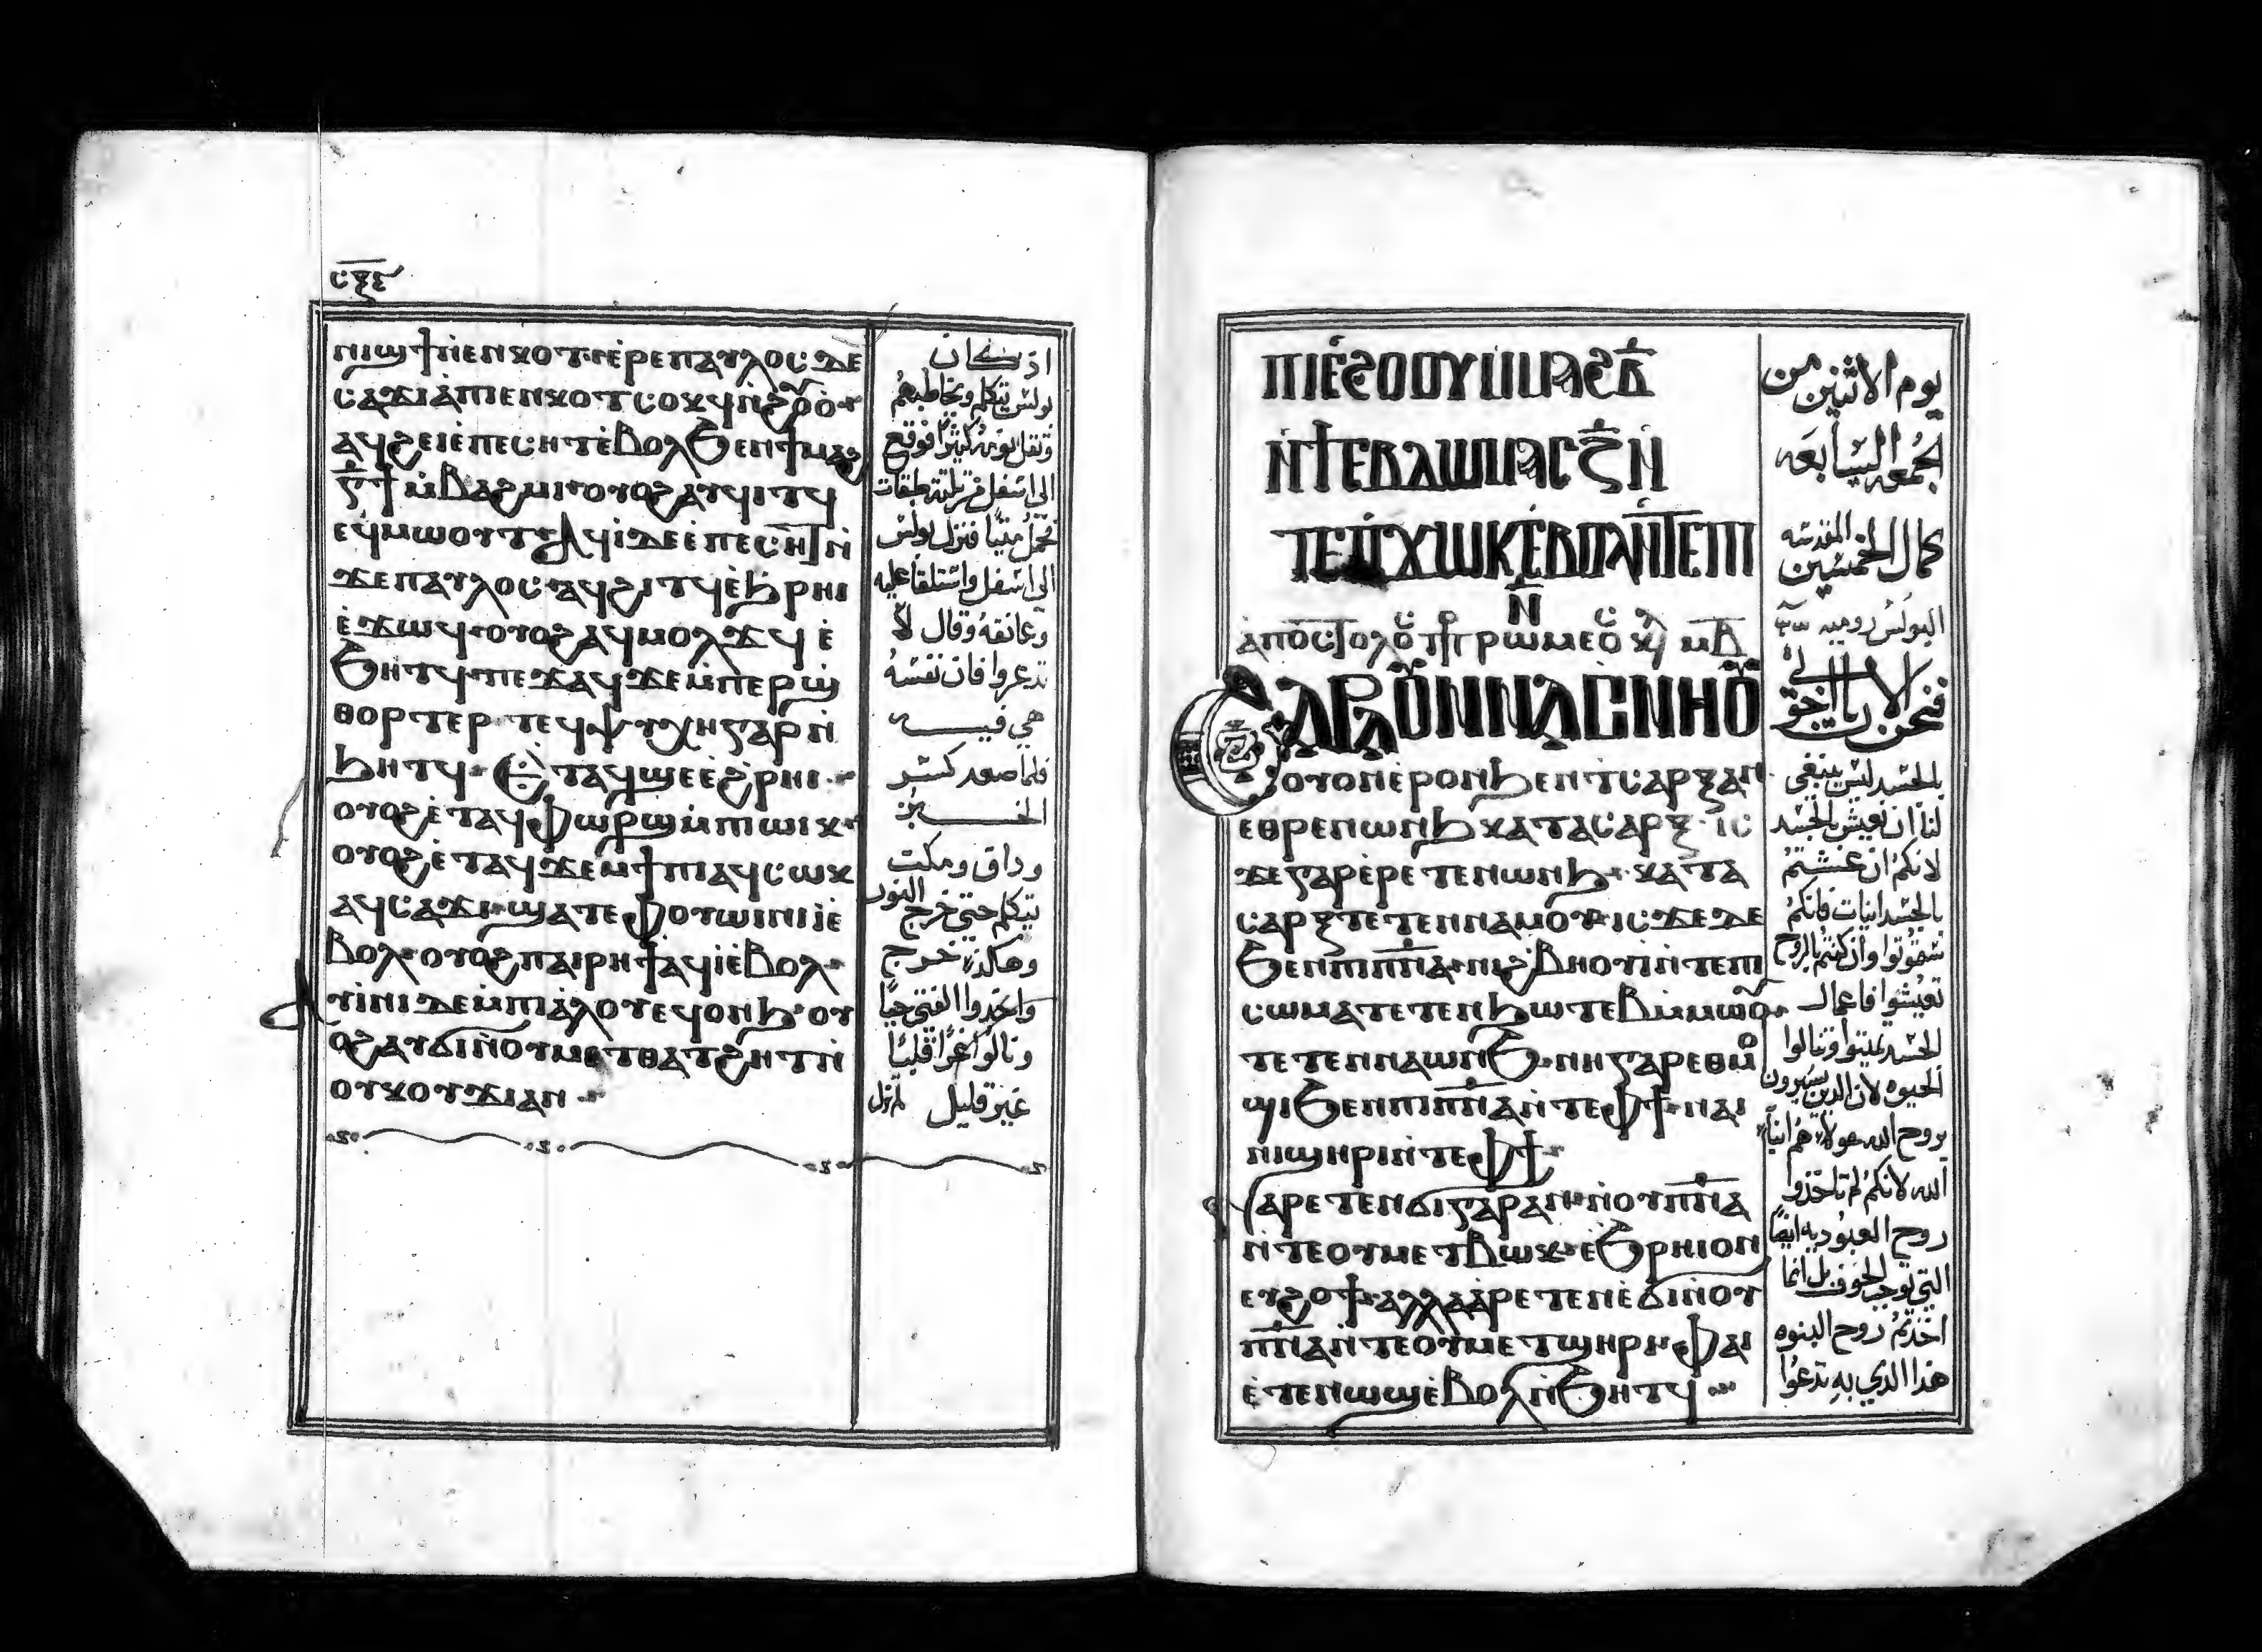 ⲥⲝⲋ
ⲛⲓϣϯⲛ̀ⲉⲛⲕⲟⲧ·ⲉ̀ⲣⲉⲡⲁⲩⲗⲟⲥ ⲇⲉ
ⲥⲁϫⲓⲁ̀ⲡⲓⲉⲛⲕⲟⲧⲥⲟⲕϥⲛ̀ϩⲟⲩⲟ̀
ⲁϥϩⲉⲓⲉ̀ⲡⲉⲥⲏⲧⲉ̀ⲃⲟⲗϧⲉⲛϯⲙⲁϩ
ⲅ̅ϯⲙ̀ⲃⲁϩⲙⲓ·ⲟⲩⲟϩⲁⲩϥⲓⲧϥ
ⲉϥⲙⲱⲟⲩⲧ·ⲁϥⲓ̀ⲇⲉⲉ̀ⲡⲉⲥⲏⲧⲛ̀
ϫⲉⲡⲁⲩⲗⲟⲥ·ⲁϥϩⲓⲧϥⲉ̀ϧⲣⲏⲓ
ⲉ̀ϫⲱϥ·ⲟⲩⲟϩⲁϥⲙⲟⲗϫϥ ⲉ̀
ϧⲏⲧϥ·ⲡⲉϫⲁϥϫⲉⲙ̀ⲡⲉⲣϣ
ⲑⲟⲣⲧⲉⲣ·ⲧⲉϥⲯⲩⲭⲏⲅⲁⲣⲛ̀
ϧⲏⲧϥ·ⲉ̀ⲧⲁϥϣⲉⲉ̀ϩⲣⲏⲓ·
ⲟⲩⲟϩⲉ̀ⲧⲁϥⲫⲱⲣϣⲙ̀ⲡⲓⲱⲓⲕ·
ⲟⲩⲟϩⲉ̀ⲧⲁϥϫⲉⲙϯⲡⲓⲁϥⲥⲱⲕ
ⲁϥⲥⲁϫⲓ·ϣⲁⲧⲉⲫⲟⲩⲱⲓⲛⲓⲓ̀ⲉ̀
ⲃⲟⲗ·ⲟⲩⲟϩⲡⲁⲓⲣⲏϯⲁϥⲓ̀ⲉ̀ⲃⲟⲗ·
ⲁⲩⲓ̀ⲛⲓⲇⲉⲙ̀ⲡⲓⲁ̀ⲗⲟⲩⲉϥⲟⲛϧ·ⲟⲩ
ⲟϩⲁⲩϭⲓⲛ̀ⲟⲩⲙⲉⲧⲑⲁⲧϩⲏⲧⲛ̀
ⲟⲩⲕⲟⲩϫⲓⲁⲛ·
اذ كان
بولس يتكلم ويخاطبهم
وثقل نومه كثيرًا فوقع
الى اسفل من ثلثة طبقات
فحمل ميتًا فنزل بولس
الى اسفل واستلقا عليه
وعانقه وقال لا
تدعروا فان نفسه
هي فيه
فلما صعد كسر
الخبز
وداق ومكت
يتكلم حتى خرج النور
وهكذا خرج
واخدوا الفتى حيًا
ونالوا عزًا قلبيًا
غير قليل
ⲡⲓⲉ̀ϩⲟⲟⲩⲙ̀ⲙⲁϩⲃ̅
ⲛ̀ϯⲉⲃⲇⲱⲙⲁⲥⲍ̅ⲛ̀
ⲧⲉⲡϫⲱⲕⲉ̀ⲃⲟⲗⲛ̀ⲧⲉⲡⲓ
ⲛ̅
ⲁⲡⲟⲥⲧⲟⲗⲟⲥ ⲡⲣ ⲣⲱⲙⲉⲟⲥ ⲕⲉ ⲙⲇ̅
ϩⲁⲣⲁⲟⲩⲛⲛⲁⲥⲛⲏⲟⲩ
ⲟⲩⲟⲛⲉ̀ⲣⲟⲛϧⲉⲛⲧⲥⲁⲣⲝⲁⲛ
ⲉⲑⲣⲉⲛⲱⲛϧⲕⲁⲧⲁⲥⲁⲣⲝ·ⲓⲥ
ϫⲉⲅⲁⲣⲉ̀ⲣⲉⲧⲉⲛⲱⲛϧ·ⲕⲁⲧⲁ
ⲥⲁⲣⲝⲧⲉⲧⲉⲛⲛⲁⲙⲟⲩ·ⲓⲥϫⲉⲇⲉ
ϧⲉⲛⲡⲓⲡ̅ⲛ̅ⲁ̅·ⲛⲓϩⲃⲏⲟⲩⲓ̀ⲛ̀ⲧⲉⲡⲓ
ⲥⲱⲙⲁⲧⲉⲧⲉⲛϧⲱⲧⲉⲃⲙ̀ⲙⲱⲟⲩ·
ⲧⲉⲧⲉⲛⲛⲁⲱⲛϧ·ⲛⲏⲅⲁⲣⲉⲑⲙⲟ
ϣⲓϧⲉⲛⲡⲓⲡ̅ⲛ̅ⲁ̅ⲛ̀ⲧⲉⲫϯ·ⲛⲁⲓ
ⲛⲓϣⲏⲣⲓⲛ̀ⲧⲉⲫϯ·
ⲉⲧⲁⲣⲉⲧⲉⲛϭⲓⲅⲁⲣⲁⲛ·ⲛ̀ⲟⲩⲡ̅ⲛ̅ⲁ̅
ⲛ̀ⲧⲉⲟⲩⲙⲉⲧⲃⲱⲕ·ⲉ̀ϧⲣⲏⲓⲟⲛ
ⲉⲩϩⲟϯ·ⲁⲗⲗⲁⲁⲣⲉⲧⲉⲛⲉ̀ϭⲓⲛ̀ⲟⲩ
ⲡ̅ⲛ̅ⲁ̅ⲛ̀ⲧⲉⲟⲩⲙⲉⲧϣⲏⲣⲓ·ⲫⲁⲓ
ⲉ̀ⲧⲉⲛⲱϣⲉ̀ⲃⲟⲗⲛ̀ϧⲏⲧϥ
يوم الاثنين من
الجمعه السابعه
كمال الخمسين المقدسه
البولس روميه
فنحن الان يا اخوتي
بالجسد ليس ينبغي
لنا ان نعيش بالجسد
لانكم ان عشتم
بالجسدانيات فانكم
تموتوا وان كنتم بالروح
تعيشوا فاعمال
الجسد تميتوا وتنالوا
الحيوه لان الدين يسيرون
بروح الله هولا هم ابنا
الله لانكم لم تاخذوا
روح العبوديه ايضًا
التي توجب الخوف بل انما
اخذتم روح البنوه
هذا الذي به تدعوا